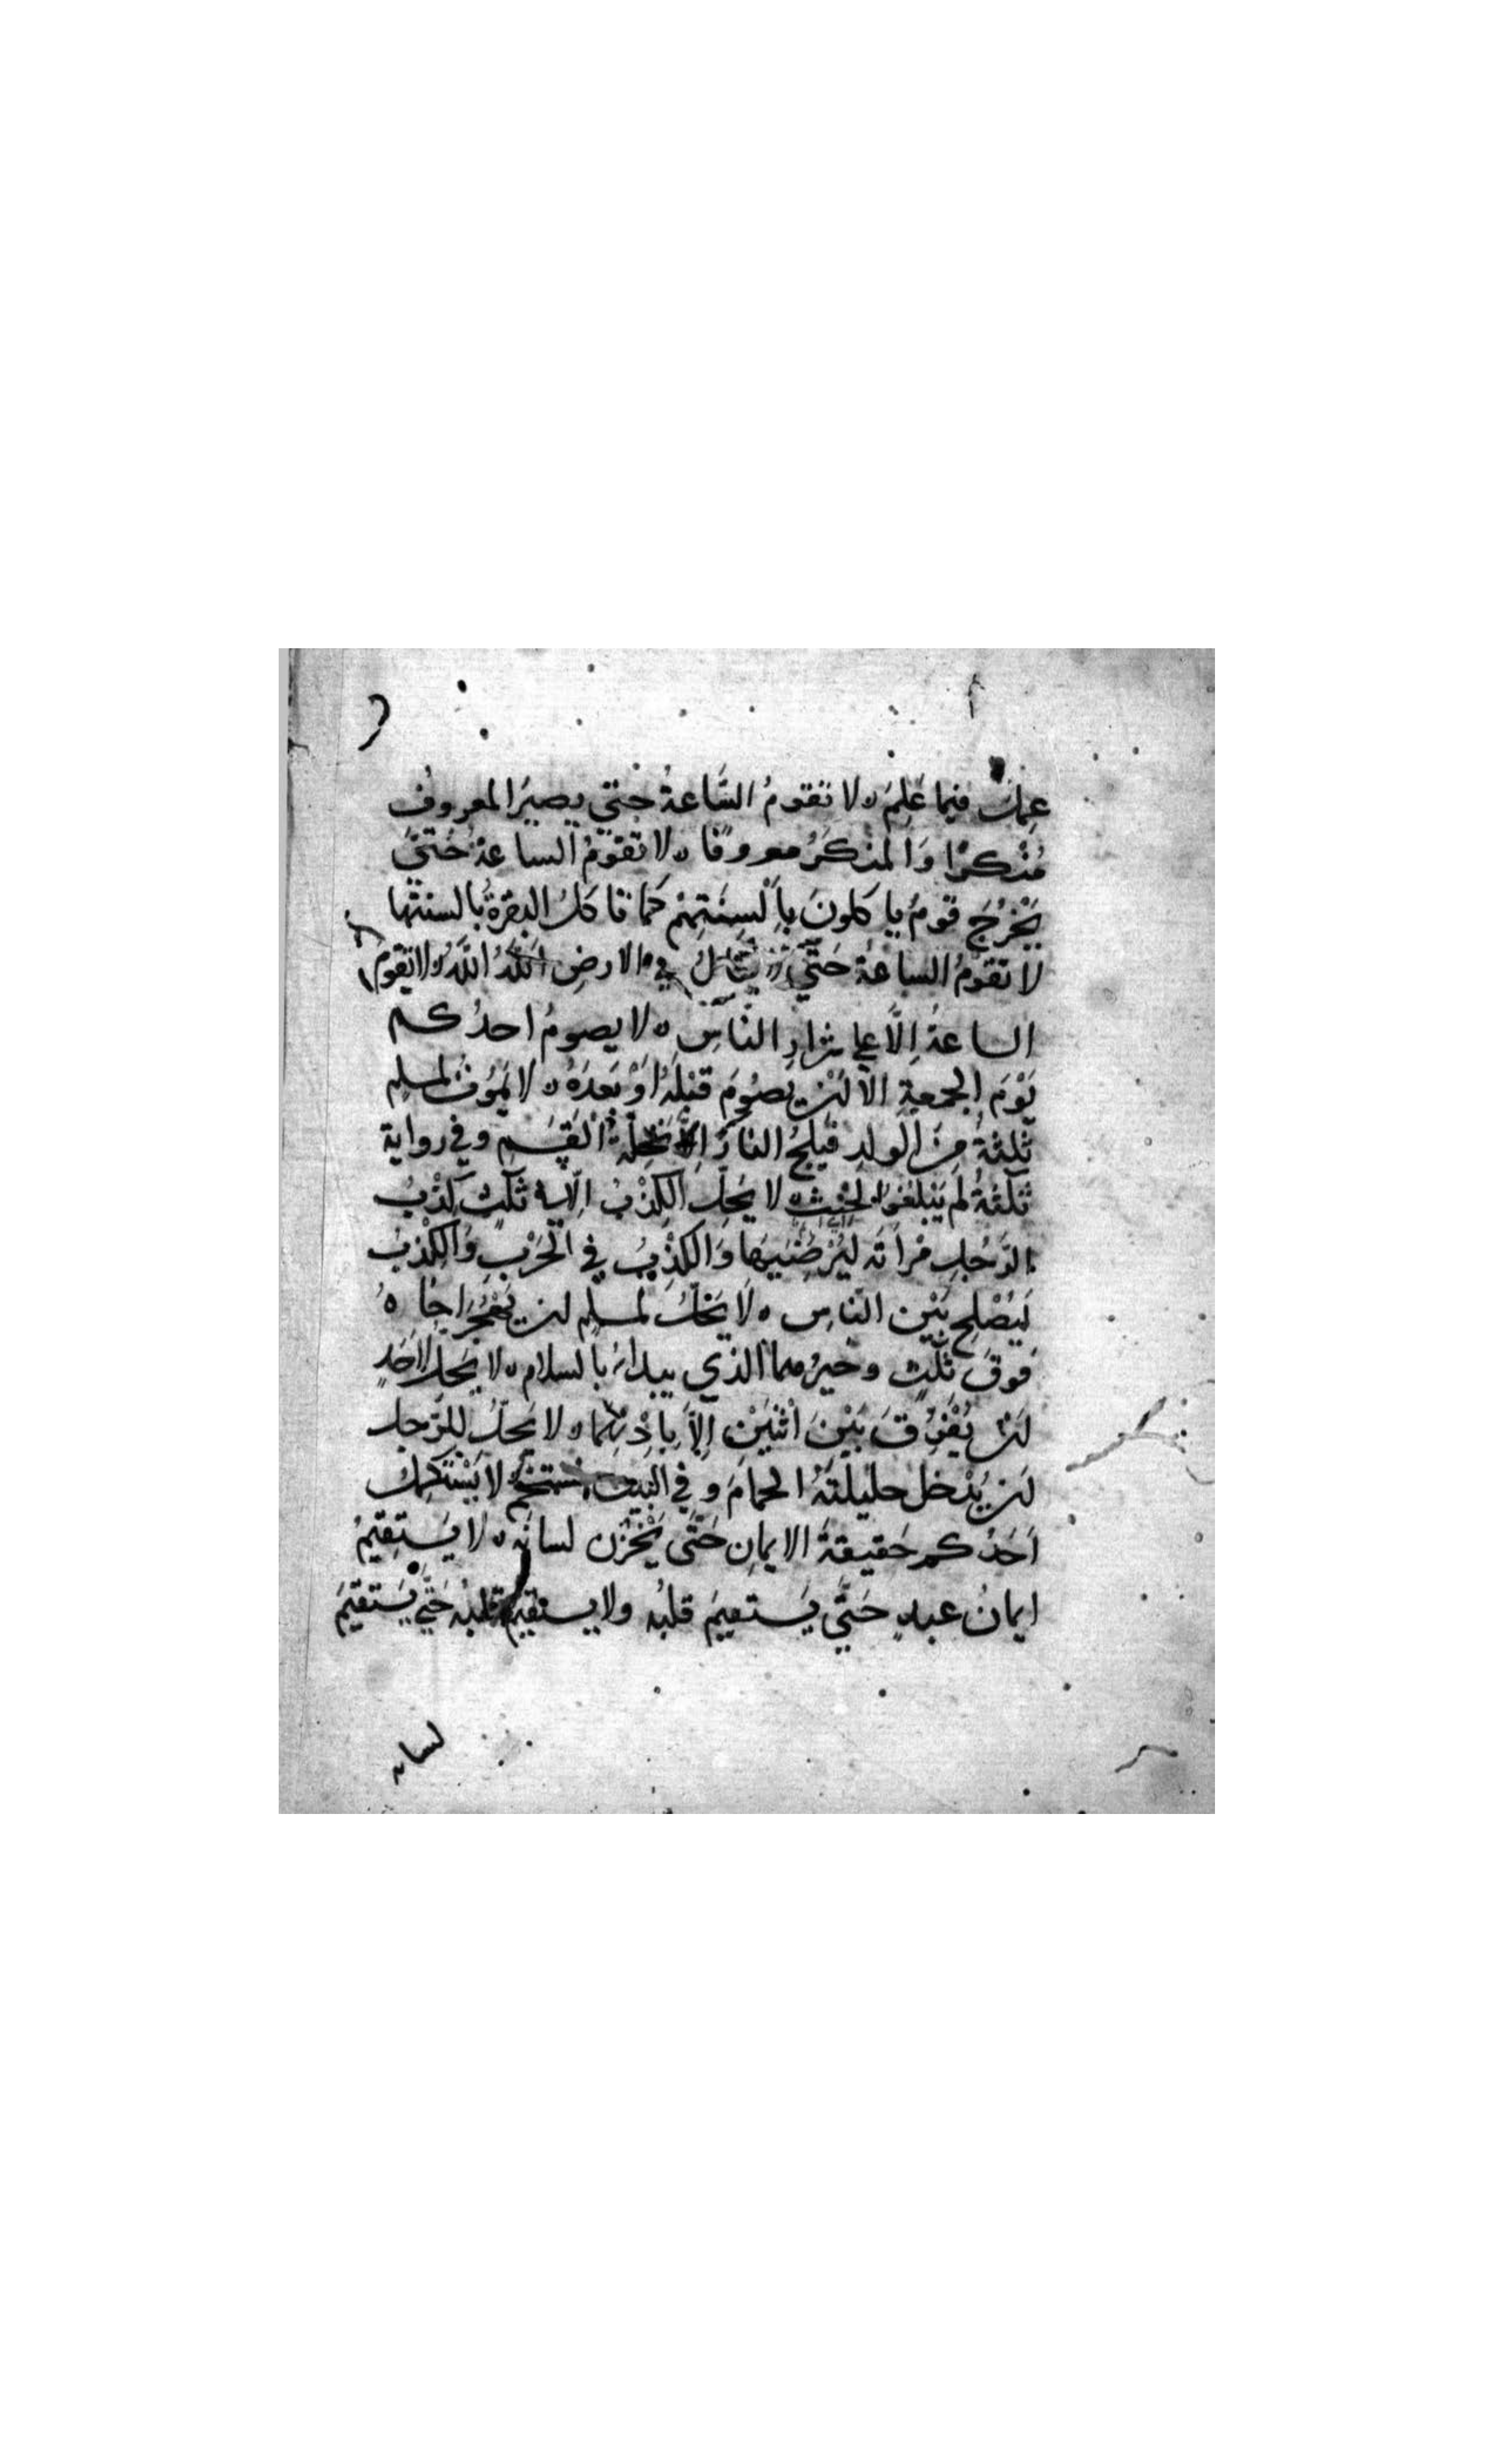 عمل فيما عَلِمَ ه لا تقومُ السَّاعةُ حتي يصيرَ المعروفُ
مُنْكرًا وَالمنكَرُ معروفًا ه لا تقومُ الساعةُ حَتّيَ
يَخْرُجَ قومٌ ياكلونَ بِاَلْسِنَتِهِمْ كما تاكلُ البقرةُ بالسنتها
لا تقومُ الساعةُ حَتّي يقالُ في الارضِ اللّهُ اللّهُ ه لا تقوم
الساعةُ اِلَّا علي شرارِ النَّاسِ ه لا يصومُ احدُكم
يَوْمَ الجمعةِ الا ان يَصُومَ قبْلَهُ اَوْ بَعدَهُ ه لا يَمُوتُ لمسلمٍ
ثلثةٌ مِنَ الْولدِ فيلجُ النارَ اِلّا تَحِلّةَ القَسَمِ وفي رواية
ثلثةٌ لَم يَبْلغوا الْحِنْث ه لا يَحِلُّ الْكِذْبُ اِلّا في ثَلثٍ كِذْبُ
الرَّجُلِ مْراَتَه لِيُرْضِيَهَا وَالكِذْبُ في الْحَرْبِ وَالْكِذْبُ
لِيُصْلِحَ بَيْنَ النَّاسِ ه لا يَحلُّ لمسلمٍ ان يَهْجُرَ اخاهُ
فوقَ ثلثٍ وخيرُهما الذي يبدأ بالسلام ه لا يَحلُّ لاحَدٍ
ان يُفَرِّقَ بَيْنَ اثْنَيْنِ اِلّاَ بِاِذْنِهِما ه لا يَحلُّ للرَّجلِ
ان يُدْخل حليلتَهُ الحمامَ وفي البيت مستحم لا يَسْتَكمل
اَحَدُكم حَقيقةَ الايمانِ حَتّى يَخْزُن لسانَه ه لا يَستقيمُ
ايمانُ عبدٍ حَتّي يَستقيمَ قلبُه ولا يستقيمُ قلبُه حَتّي يَستقيمَ
لسانه